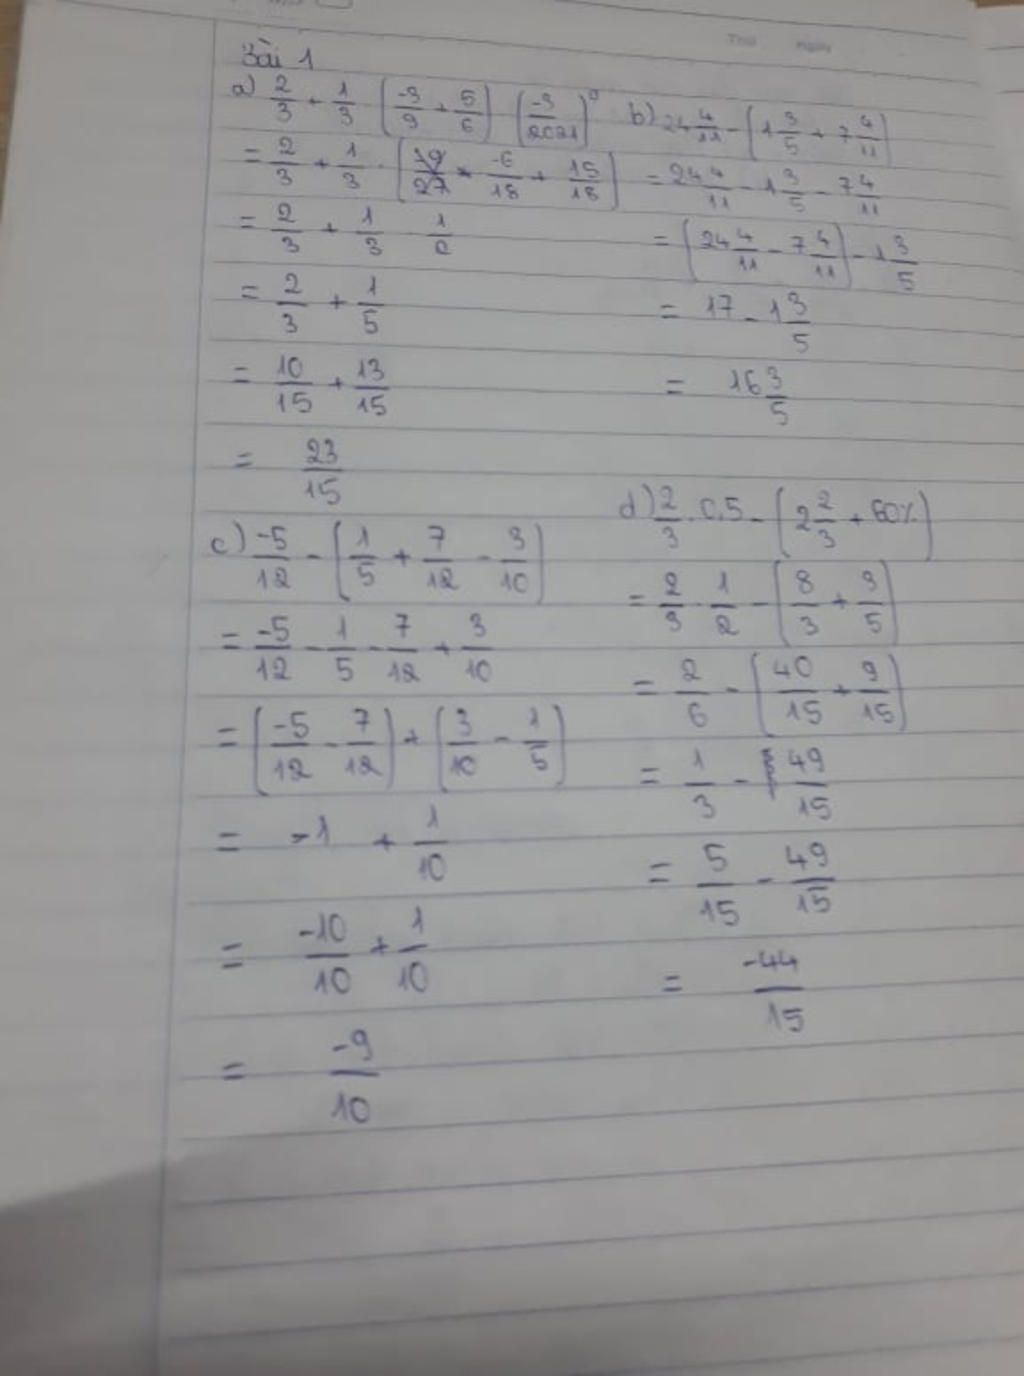 Thứ Ngày
Bài 1
a) 2/3 + 1/3 · (-3/9 + 5/6) · (-3/2021)^0
= 2/3 + 1/3 · ( -6/18 + 15/18 )
= 2/3 + 1/3 · 1/2
= 2/3 + 1/5
= 10/15 + 13/15
= 23/15
b) 24 4/11 - (1 3/5 + 7 4/11)
= 24 4/11 - 1 3/5 - 7 4/11
= (24 4/11 - 7 4/11) - 1 3/5
= 17 - 1 3/5
= 16 3/5
c) -5/12 - (1/5 + 7/12 - 3/10)
= -5/12 - 1/5 - 7/12 + 3/10
= (-5/12 - 7/12) + (3/10 - 1/5)
= -1 + 1/10
= -10/10 + 1/10
= -9/10
d) 2/3 · 0,5 - (2 2/3 + 60%)
= 2/3 · 1/2 - (8/3 + 3/5)
= 2/6 - (40/15 + 9/15)
= 1/3 - 49/15
= 5/15 - 49/15
= -44/15